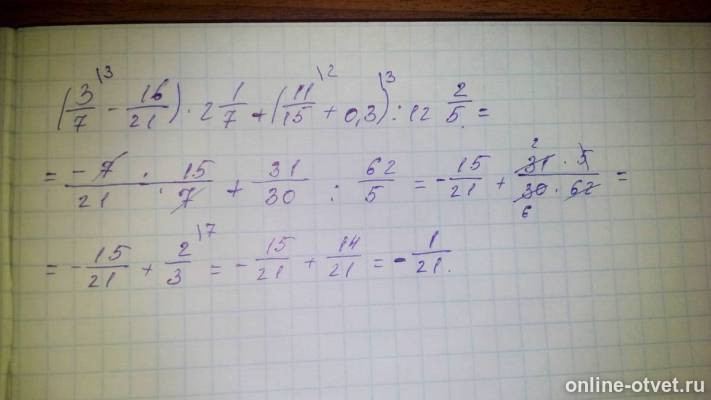 (3/7 \3 - 16/21) · 2 1/7 + (11/15 \2 + 0,3 \3) : 12 2/5 =
= -7/21 : 15/7 + 31/30 : 62/5 = -15/21 + 31 · 5/30 · 62 2 6 =
= -15/21 + 2/3 \7 = -15/21 + 14/21 = -1/21.
online-otvet.ru